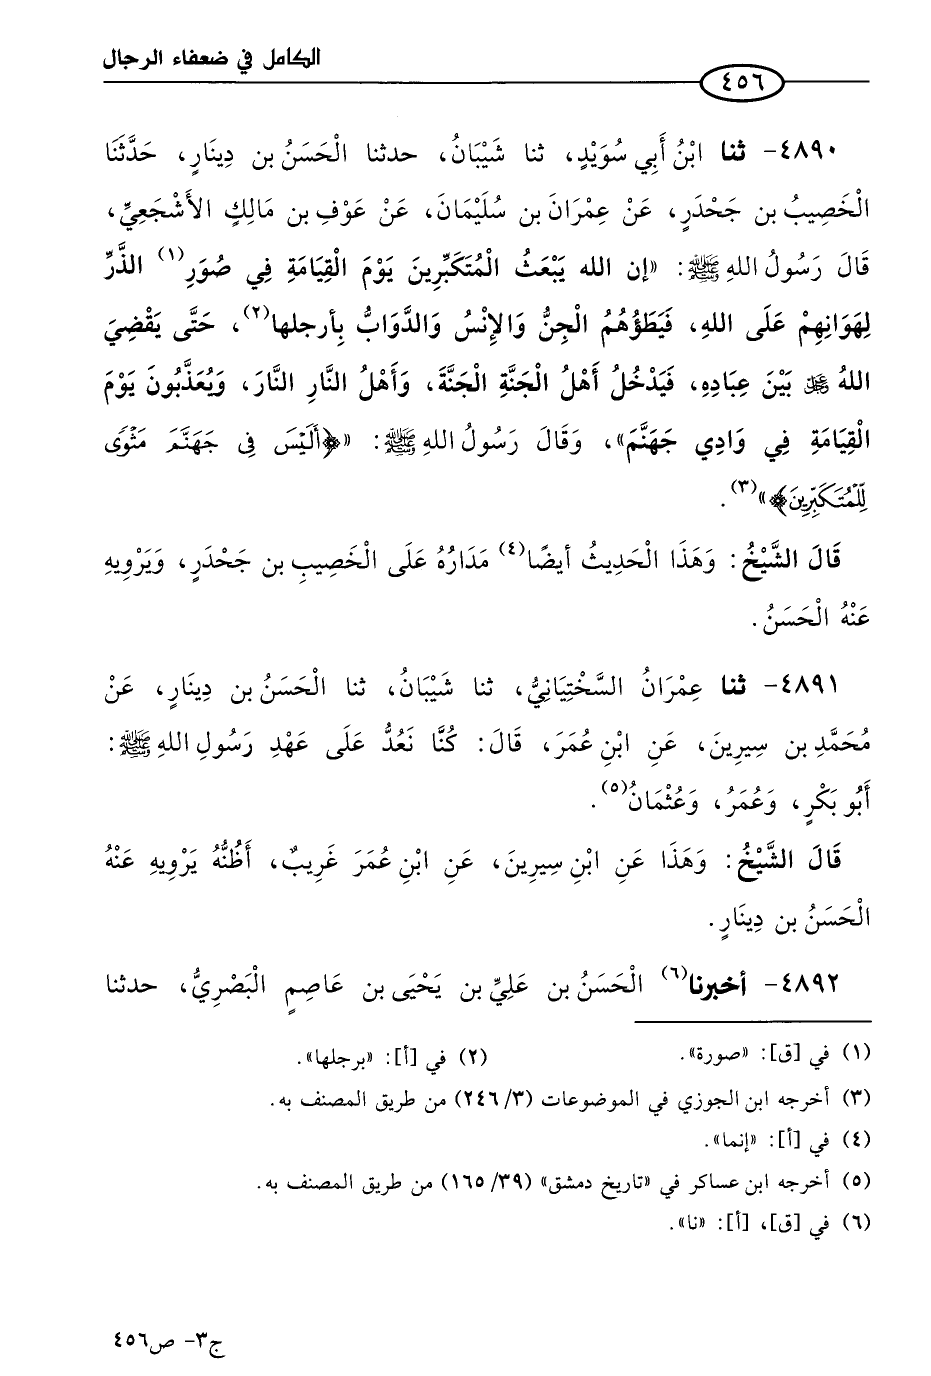 الكامل في ضعفاء الرجال
٤٥٦
٤٨٩٠- ثنا ابْنُ أَبِي سُوَيْدٍ، ثنا شَيْبَانُ، حدثنا الْحَسَنُ بن دِينَارٍ، حَدَّثَنَا
الْخَصِيبُ بن جَحْدَرٍ، عَنْ عِمْرَانَ بن سُلَيْمَانَ، عَنْ عَوْفِ بن مَالِكٍ الأَشْجَعِيِّ،
قَالَ رَسُولُ اللهِ ﷺ: «إن الله يَبْعَثُ الْمُتَكَبِّرِينَ يَوْمَ الْقِيَامَةِ فِي صُوَرِ(١) الذَّرِّ
لِهَوَانِهِمْ عَلَى اللهِ، فَيَطَؤُهُمُ الْجِنُّ وَالإِنْسُ وَالدَّوَابُّ بِأرجلها(٢)، حَتَّى يَقْضِيَ
اللهُ ﷻ بَيْنَ عِبَادِهِ، فَيَدْخُلُ أَهْلُ الْجَنَّةِ الْجَنَّةَ، وَأَهْلُ النَّارِ النَّارَ، وَيُعَذَّبُونَ يَوْمَ
الْقِيَامَةِ فِي وَادِي جَهَنَّمَ»، وَقَالَ رَسُولُ اللهِ ﷺ: «﴿أَلَيْسَ فِى جَهَنَّمَ مَثْوًى
لِّلْمُتَكَبِّرِينَ﴾»(٣).
قَالَ الشَّيْخُ: وَهَذَا الْحَدِيثُ أيضًا(٤) مَدَارُهُ عَلَى الْخَصِيبِ بن جَحْدَرٍ، وَيَرْوِيهِ
عَنْهُ الْحَسَنُ.
٤٨٩١- ثنا عِمْرَانُ السَّخْتِيَانِيُّ، ثنا شَيْبَانُ، ثنا الْحَسَنُ بن دِينَارٍ، عَنْ
مُحَمَّدِ بن سِيرِينَ، عَنِ ابْنِ عُمَرَ، قَالَ: كُنَّا نَعُدُّ عَلَى عَهْدِ رَسُولِ اللهِ ﷺ:
أَبُو بَكْرٍ، وَعُمَرُ، وَعُثْمَانُ(٥).
قَالَ الشَّيْخُ: وَهَذَا عَنِ ابْنِ سِيرِينَ، عَنِ ابْنِ عُمَرَ غَرِيبٌ، أَظُنُّهُ يَرْوِيهِ عَنْهُ
الْحَسَنُ بن دِينَارٍ.
٤٨٩٢- أخبرنا(٦) الْحَسَنُ بن عَلِيِّ بن يَحْيَى بن عَاصِمٍ الْبَصْرِيُّ، حدثنا
(١) في [ق]: «صورة». (٢) في [أ]: «برجلها».
(٣) أخرجه ابن الجوزي في الموضوعات (٣/ ٢٤٦) من طريق المصنف به.
(٤) في [أ]: «إنما».
(٥) أخرجه ابن عساكر في «تاريخ دمشق» (٣٩/ ١٦٥) من طريق المصنف به.
(٦) في [ق]، [أ]: «نا».
ج٣- ص٤٥٦